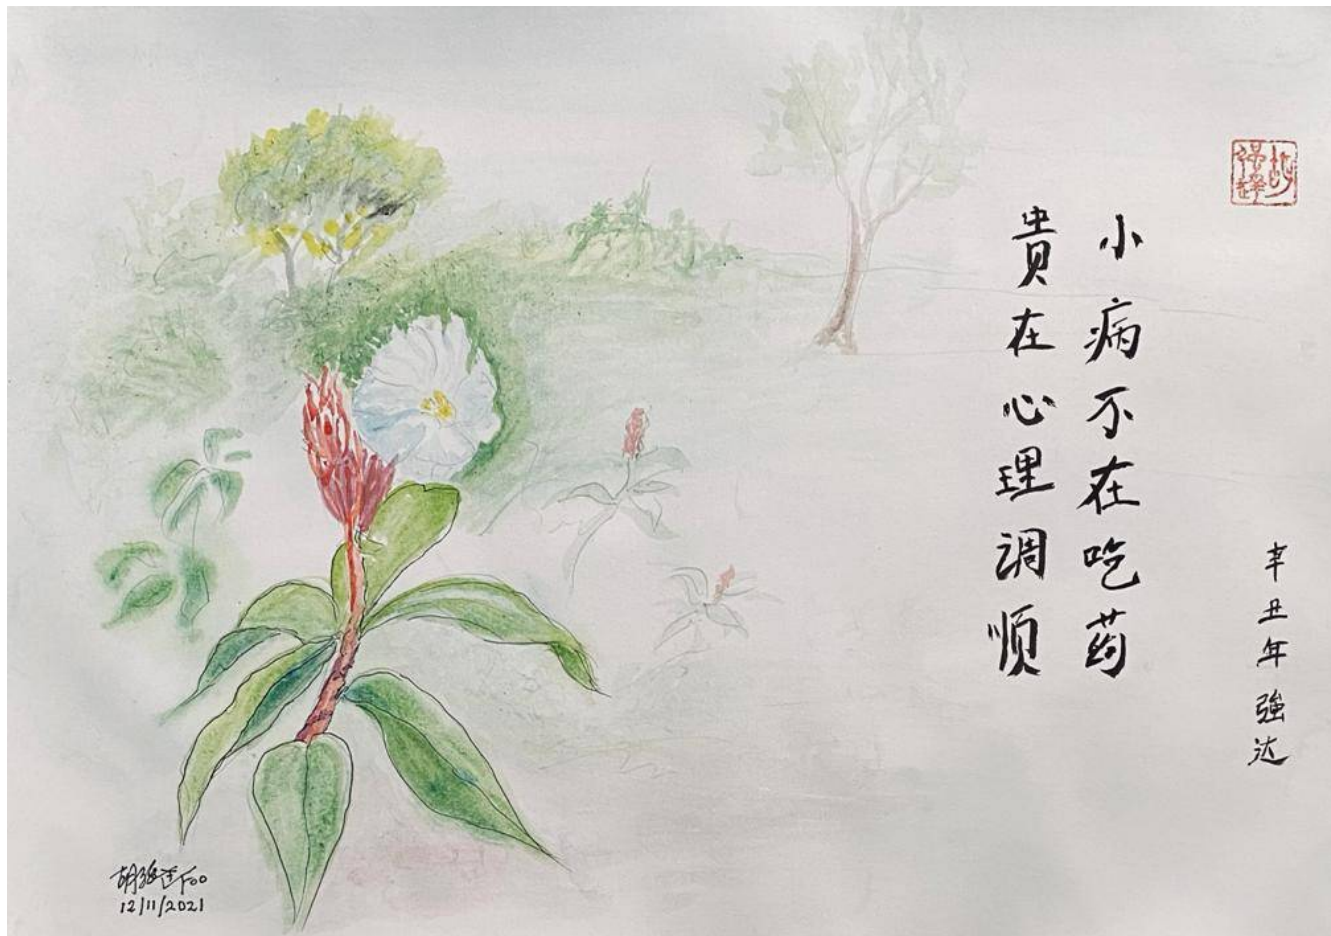 小病不在吃药
贵在心理调顺
辛丑年 強达
胡強达 Foo
12/11/2021